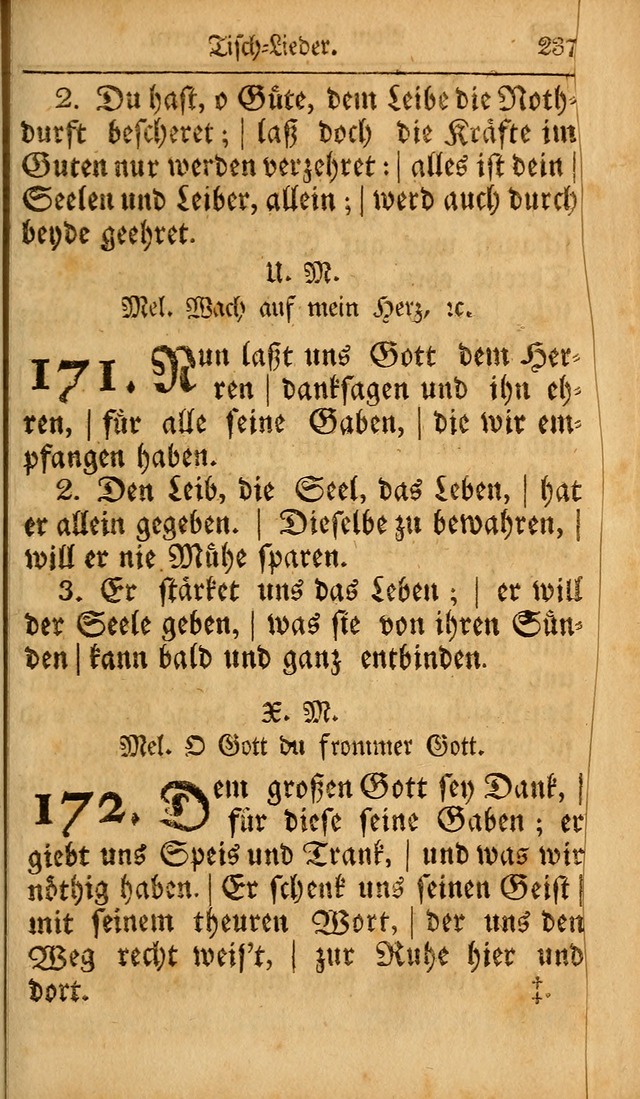 Tisch-Lieder. 237
2. Du hast, o Gůte, dem Leibe die Noth-
durft bescheret; | laß doch die Kräfte im
Guten nur werden verzehret: | alles ist dein |
Seelen und Leiber, allein; | werd auch durch
beyde geehret.
U. M.
Mel. Wach auf mein Herz, ꝛc.
171. Nun laßt uns Gott dem Her-
ren | danksagen und ihn eh-
ren, | fůr alle seine Gaben, | die wir em-
pfangen haben.
2. Den Leib, die Seel, das Leben, | hat
er allein gegeben. | Dieselbe zu bewahren, |
will er nie Můhe sparen.
3. Er stärket uns das Leben; | er will
der Seele geben, | was sie von ihren Sůn-
den | kann bald und ganz entbinden.
X. M.
Mel. O Gott du frommer Gott.
172. Dem großen Gott sey Dank, |
fůr diese seine Gaben; er
giebt uns Speis und Trank, | und was wir
nöthig haben. | Er schenk uns seinen Geist |
mit seinem theuren Wort, | der uns den
Weg recht weis't, | zur Ruhe hier und
dort. ‡.